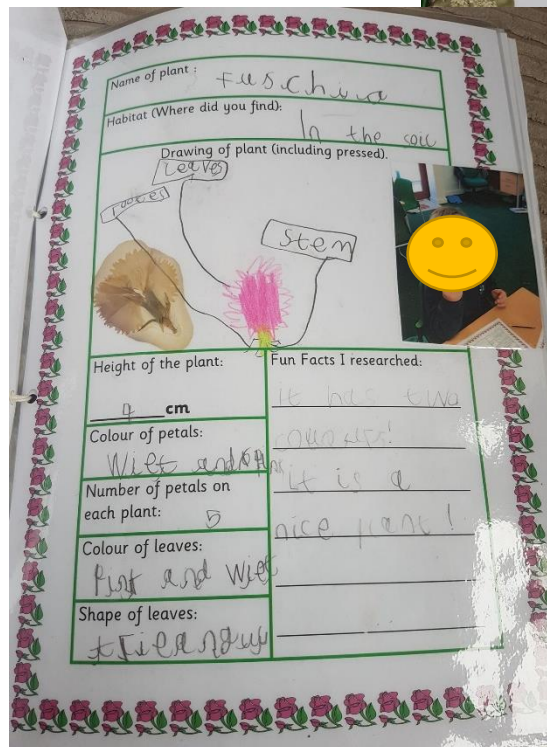 Name of plant : Fuschia
Habitat (Where did you find):
In the soil
Drawing of plant (including pressed).
Leaves
rootes
Stem
Height of the plant:
9 cm
Colour of petals:
Wiet and
Number of petals on
each plant: 5
Colour of leaves:
Pint and Wiet
Shape of leaves:
Fun Facts I researched:
it has two
it is a
nice plant!